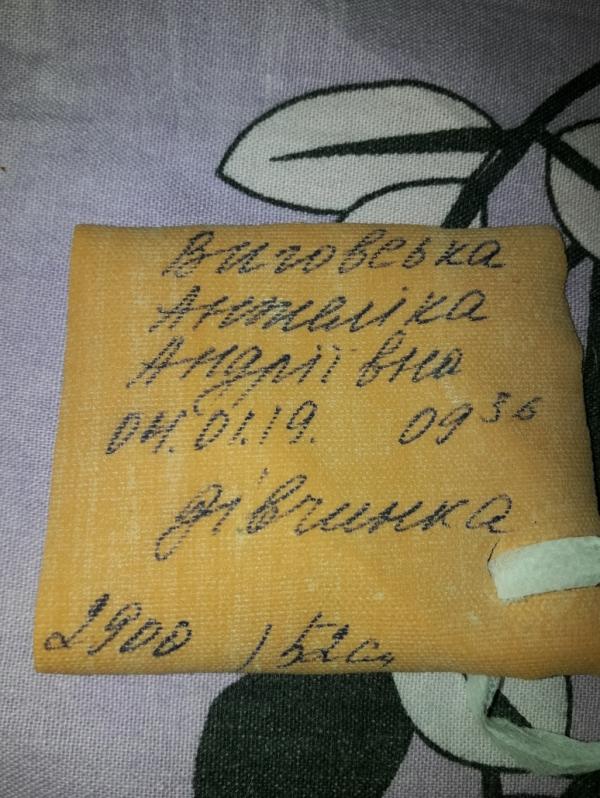 Виговська
Анжеліка
Андріївна
04.01.19. 09 36
дівчинка
2900 / 52см